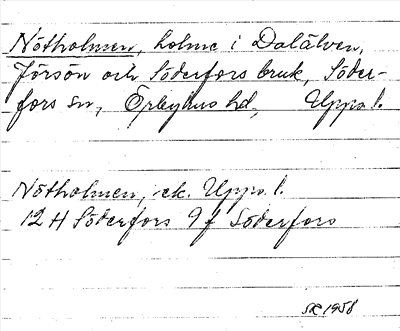 Nötholmen, holme i Dalälven,
Jörsön och Söderfors bruk, Söder-
fors sn, Örbyhus hd, Upps. l.
Nötholmen, ek. Upps. l.
12 H Söderfors 9 f Söderfors
SR 1958